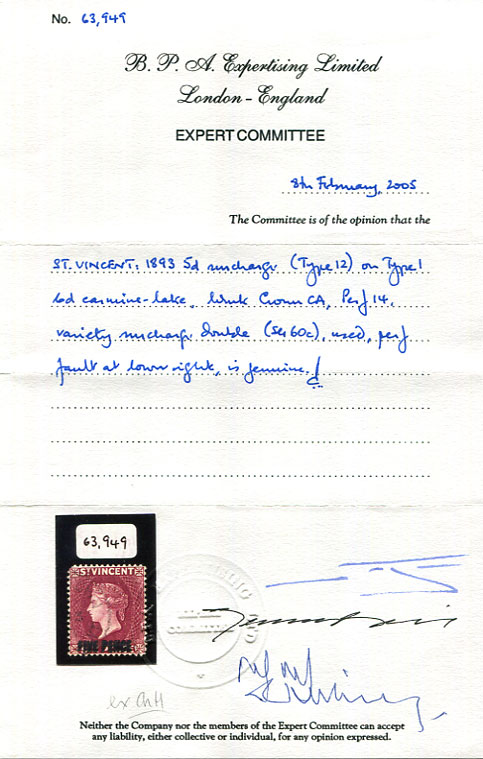 No. 63,949
B. P. A. Expertising Limited
London - England
EXPERT COMMITTEE
8th February, 2005
The Committee is of the opinion that the
ST. VINCENT: 1893 5d surcharge (Type 12) on Type 1
6d carmine-lake, Wmk Crown CA, Perf 14,
variety surcharge double (SG 60c), used, perf
fault at lower right, is genuine.
63,949
ST VINCENT
FIVE PENCE
Neither the Company nor the members of the Expert Committee can accept
any liability, either collective or individual, for any opinion expressed.